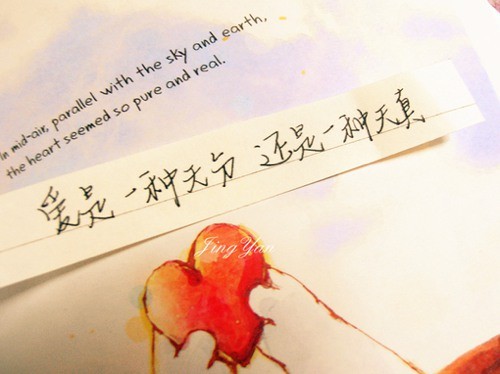 In mid-air, parallel with the sky and earth,
the heart seemed so pure and real.
爱是一种天分 还是一种天真
Jing Yan